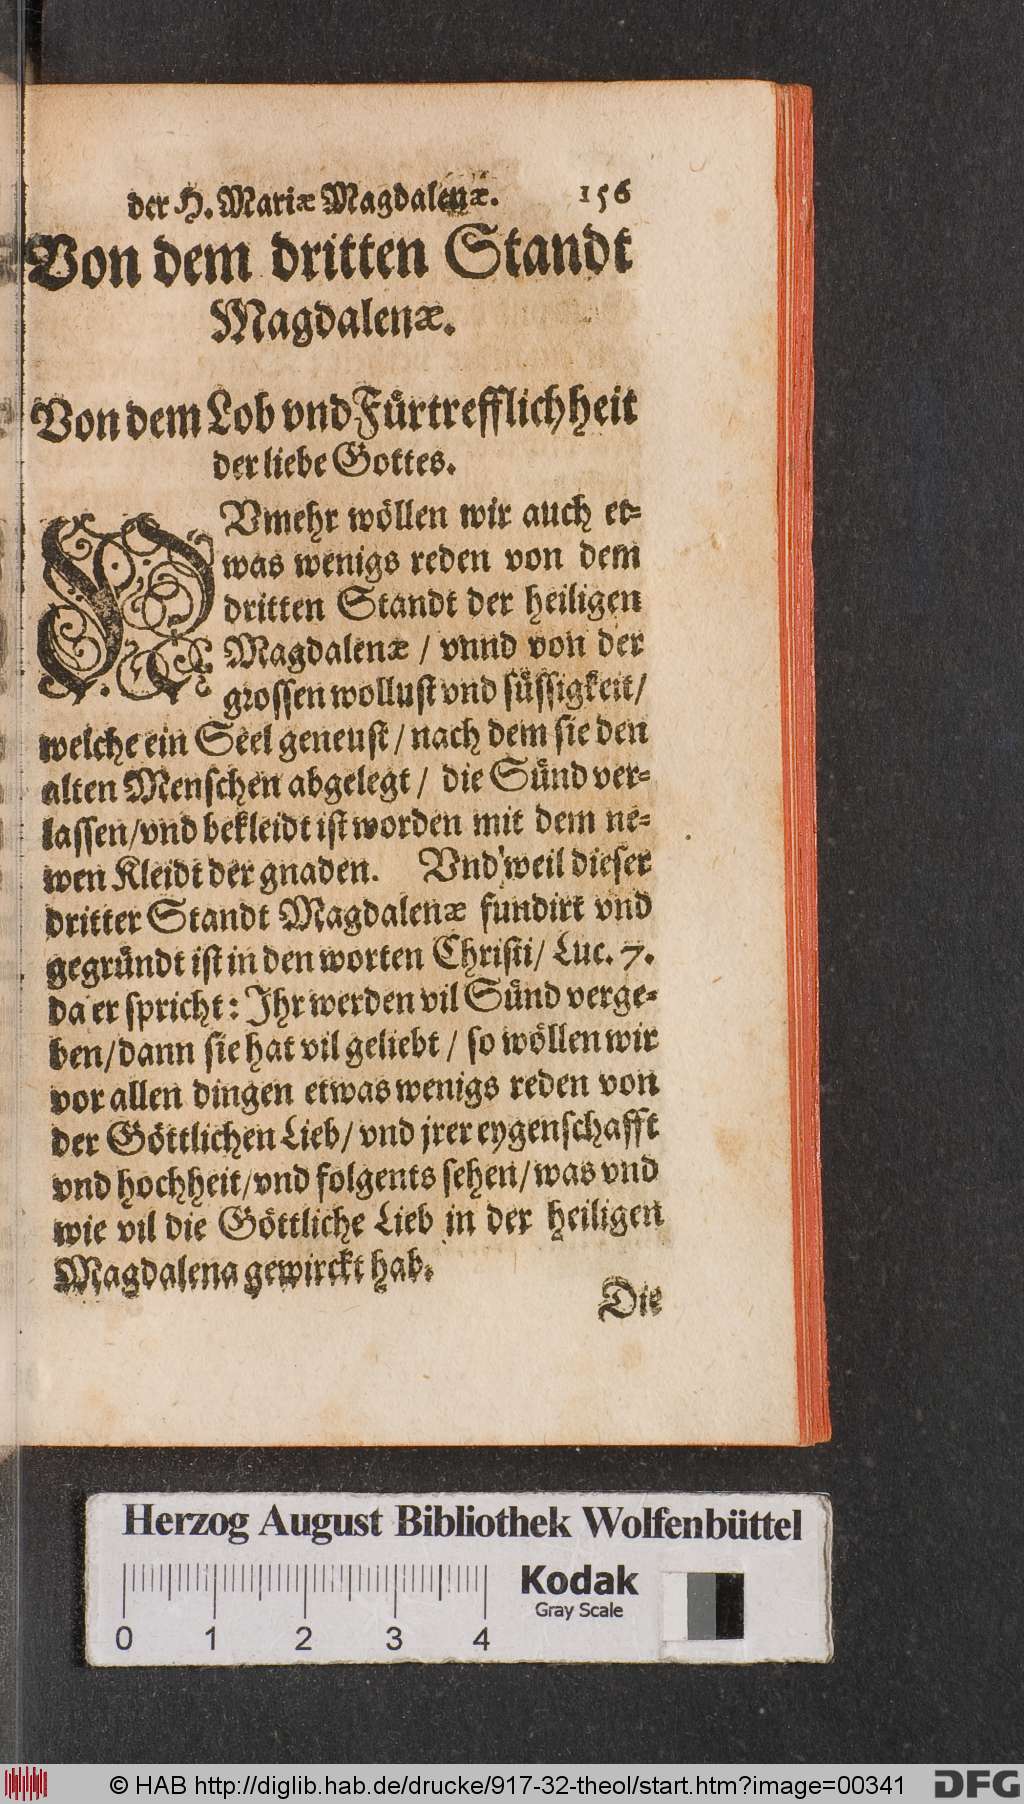 der H. Mariæ Magdalenæ. 156
Von dem dritten Standt
Magdalenæ.
Von dem Lob vnd Fürtrefflichheit
der liebe Gottes.
NVmehr wöllen wir auch et-
was wenigs reden von dem
dritten Standt der heiligen
Magdalenæ / vnnd von der
grossen wollust vnd süssigkeit /
welche ein Seel geneust / nach dem sie den
alten Menschen abgelegt / die Sünd ver-
lassen / vnd bekleidt ist worden mit dem ne-
wen Kleidt der gnaden. Vnd weil dieser
dritter Standt Magdalenæ fundirt vnd
gegründt ist in den worten Christi / Luc. 7.
da er spricht: Ihr werden vil Sünd verge-
ben / dann sie hat vil geliebt / so wöllen wir
vor allen dingen etwas wenigs reden von
der Göttlichen Lieb / vnd jrer eygenschafft
vnd hochheit / vnd folgents sehen / was vnd
wie vil die Göttliche Lieb in der heiligen
Magdalena gewirckt hab.
Die
Herzog August Bibliothek Wolfenbüttel
Kodak
Gray Scale
0 1 2 3 4
© HAB http://diglib.hab.de/drucke/917-32-theol/start.htm?image=00341
DFG